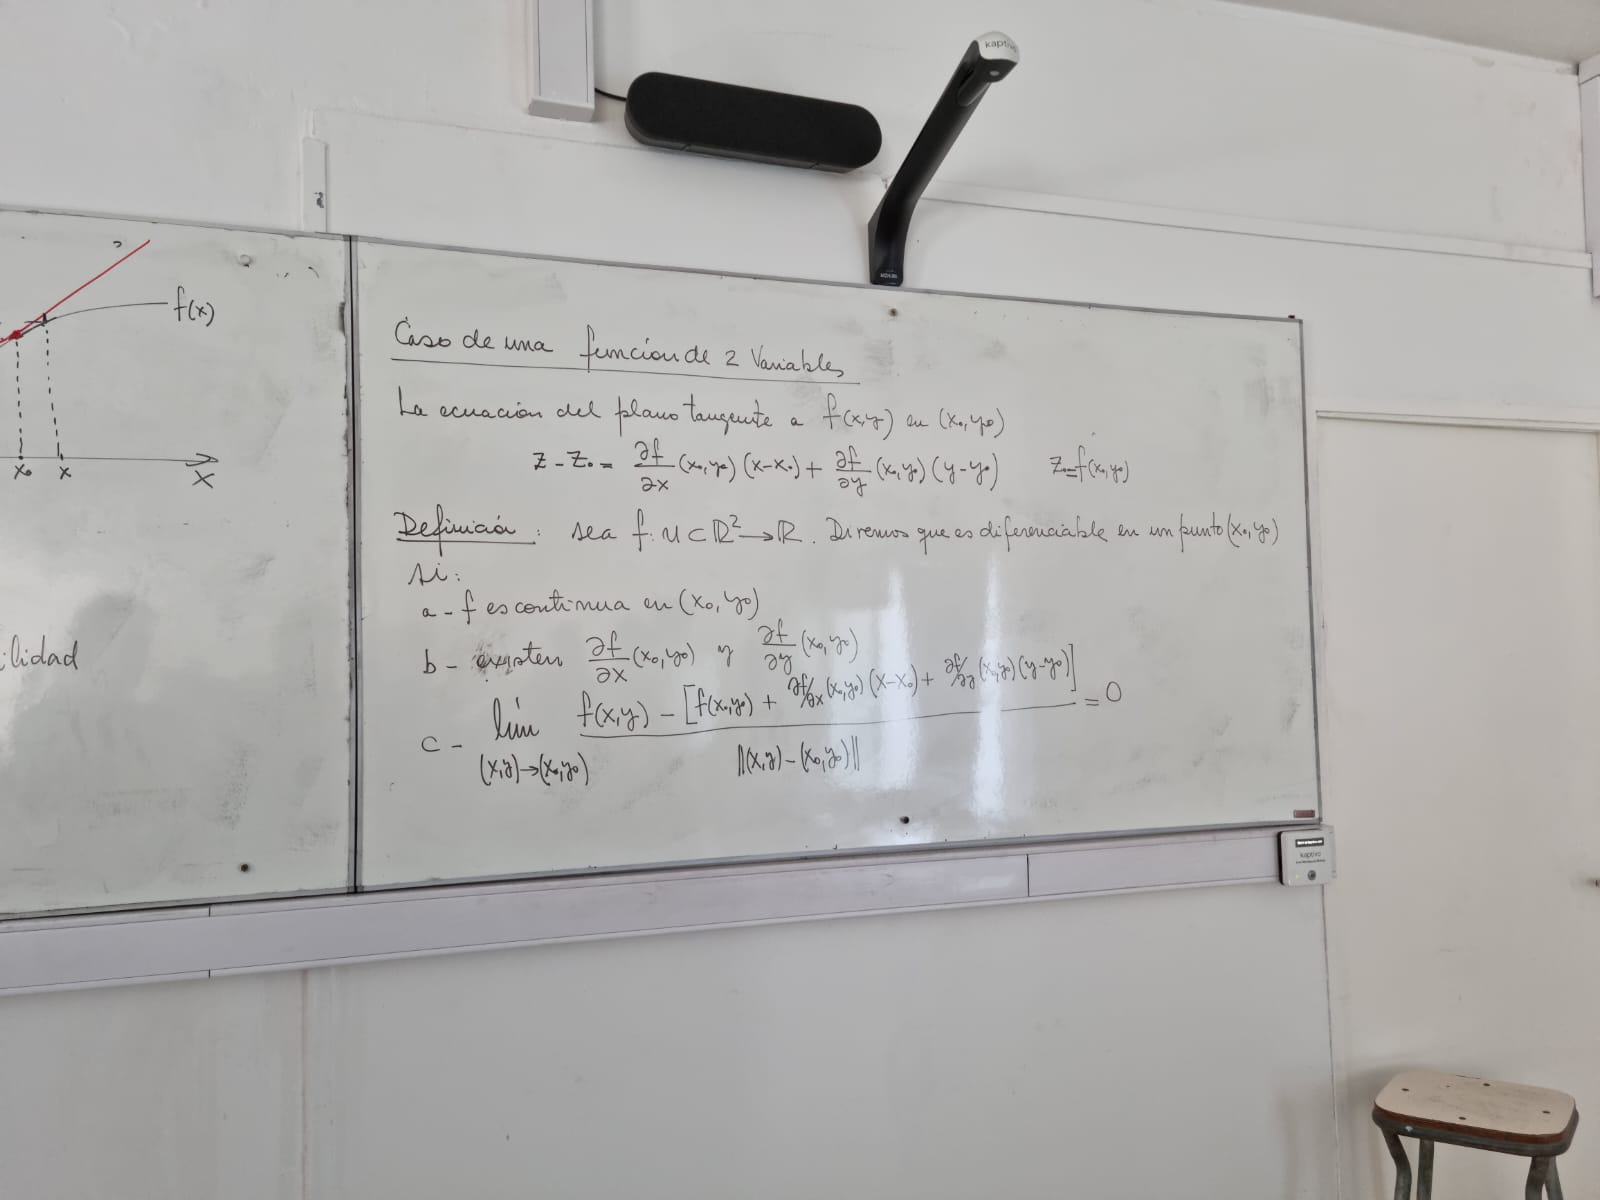 kaptivo
f(x)
x₀ x
x
ilidad
Caso de una función de 2 Variables
La ecuación del plano tangente a f(x,y) en (x₀,y₀)
z - z₀ = ∂f/∂x (x₀,y₀) (x-x₀) + ∂f/∂y (x₀,y₀) (y-y₀) z₀=f(x₀,y₀)
Definición : sea f: U ⊂ ℝ² → ℝ. Diremos que es diferenciable en un punto (x₀,y₀)
si:
a - f es continua en (x₀,y₀)
b - existen ∂f/∂x (x₀,y₀) y ∂f/∂y (x₀,y₀)
c - lím (x,y)→(x₀,y₀) f(x,y) - [f(x₀,y₀) + ∂f/∂x (x₀,y₀) (x-x₀) + ∂f/∂y (x₀,y₀) (y-y₀)] / ‖(x,y) - (x₀,y₀)‖ = 0
kaptivo